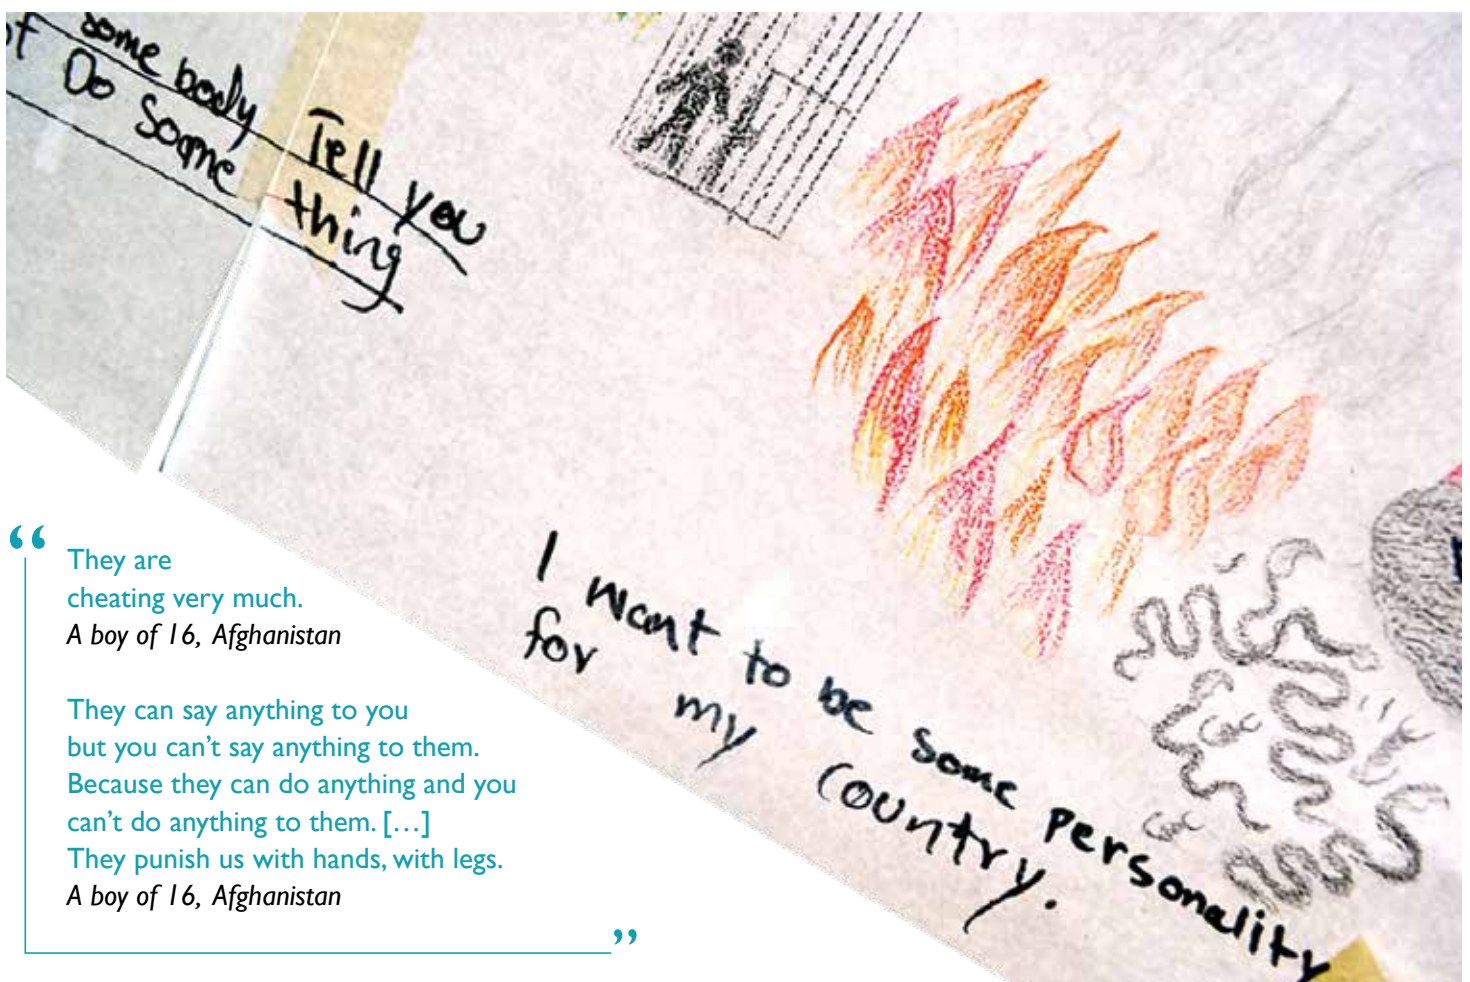 some body Tell you
Do some thing
I want to be some personality
for my country.
“
They are
cheating very much.
A boy of 16, Afghanistan
They can say anything to you
but you can’t say anything to them.
Because they can do anything and you
can’t do anything to them. […]
They punish us with hands, with legs.
A boy of 16, Afghanistan
”